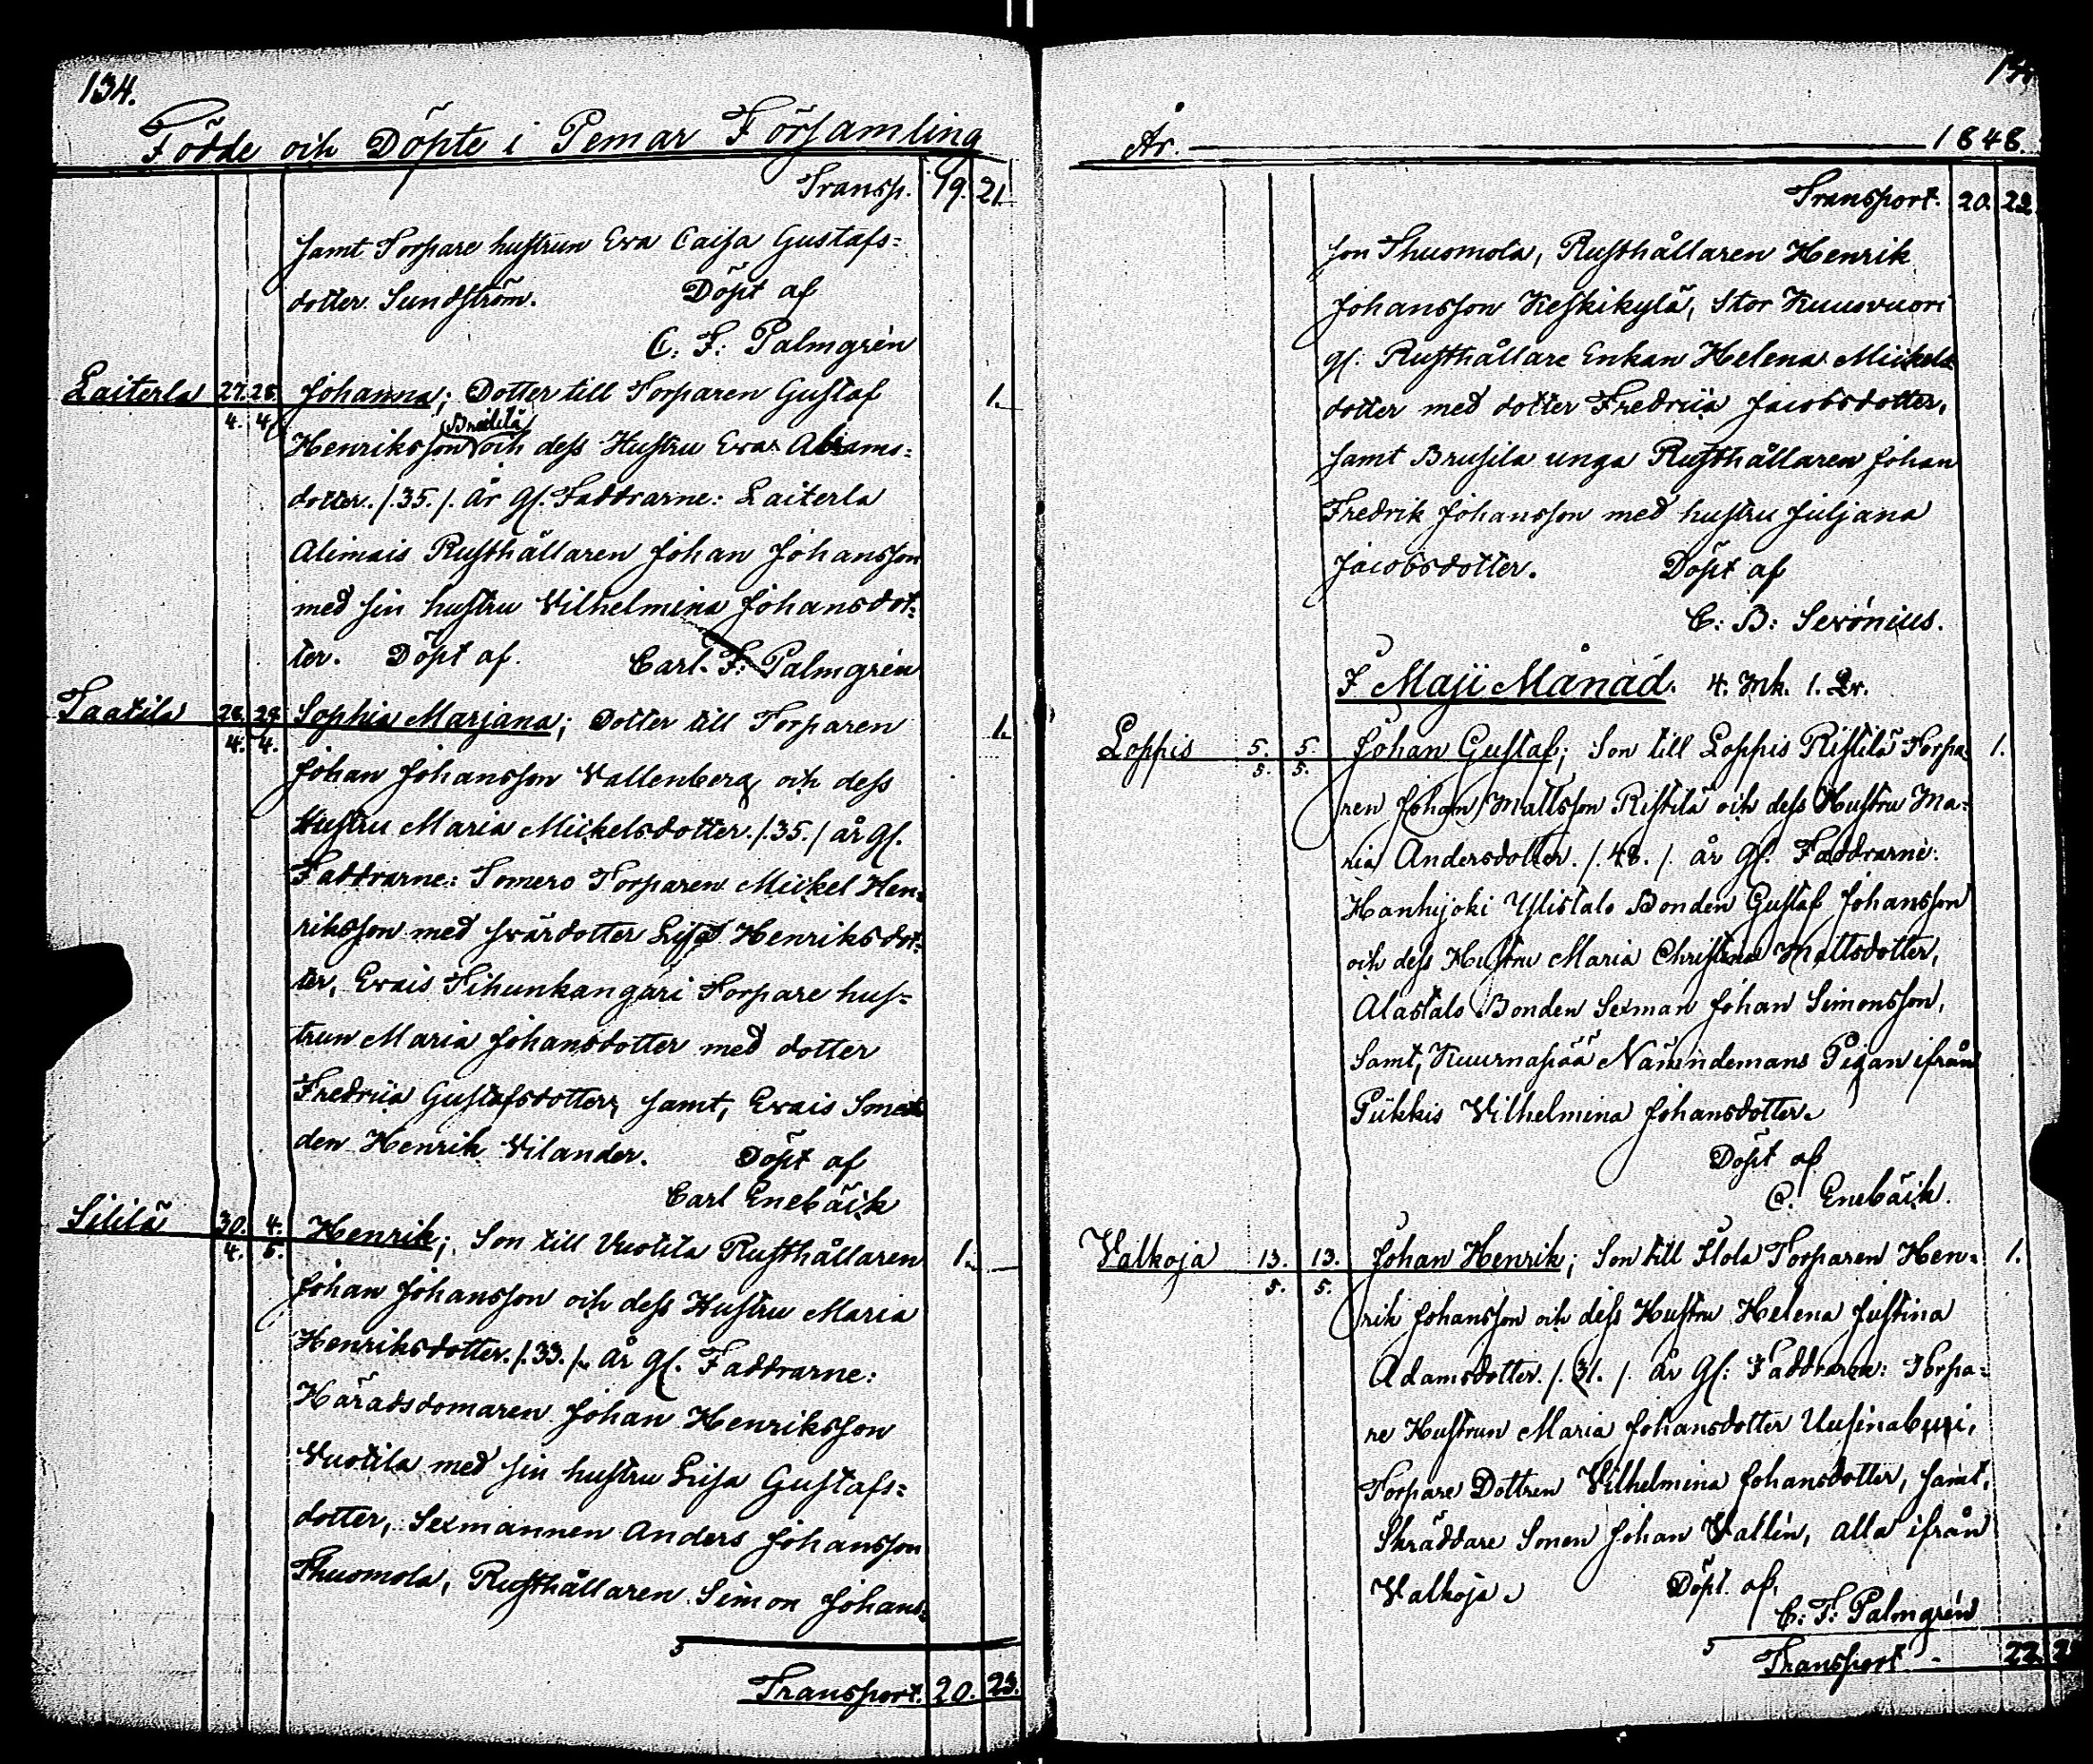 134.
Födde och Döpte i Pemar Församling
Transp. 19. 21.
samt Torpare hustrun Eva Caisa Gustafs=
dotter Sundström. Döpt af
C. F: Palmgrén
Laiterla 27. 28. Johanna; Dotter till Torparen Gustaf 1.
4. 4. Henriksson och dess Hustru Eva Abrams=
dotter. /.35./. År gl. Faddrarne: Laiterla
Alimais Rusthållaren Johan Johansson
med sin hustru Vilhelmina Johansdot=
ter. Döpt af. Carl. F: Palmgrén
Taatila 28. 29. Sophia Marjana; Dotter till Torparen 1.
4. 4.
Johan Johansson Vallenberg och dess
Hustru Maria Mickelsdotter. /.35./ år gl.
Faddrarne: Somero Torparen Mickel Hen=
riksson med svärdotter Lisa Henriksdot=
ter, Evais Tihunkangari Torpare hus=
trun Maria Johansdotter med dotter
Fredrica Gustafsdotter, samt, Evais Sme
den Henrik Vilander. Döpt af
Carl Enebäck
Sililä 30. 4. Henrik; Son till Vuotila Rusthållaren 1.
4. 5.
Johan Johansson och dess Hustru Maria
Henriksdotter. /.33./. År gl. Faddrarne:
Häradsdomaren Johan Henriksson
Vuotila med sin hustru Lisa Gustafs=
dotter, Sexmannen Anders Johansson
Thuomola, Rusthållaren Simon Johans=
Transport. 20. 23.
År. 1848.
Transport. 20. 22
son Thuomola, Rusthållaren Henrik
Johansson Keskikylä, Stor Kuusvuori
gl. Rusthållare Enkan Helena Mickels
dotter med dotter Fredrica Jacobsdotter,
samt Brusila unga Rusthållaren Johan
Fredrik Johansson med hustru Juljana
Jacobsdotter. Döpt af
C: B: Serónius.
I Maji Månad. 4. Mk. 1. Qv.
Loppis 5. 5. Johan Gustaf; Son till Loppis Ristilä Torpa= 1.
5. 5.
ren Johan Mattsson Ristilä och dess Hustru Ma=
ria Andersdotter. /.48./. år gl. Faddrarne:
Hanhijoki Ylistalo Bonden Gustaf Johansson
och dess Hustru Maria Christina Mattsdotter,
Alastalo Bonden Sexman Johan Simonsson,
Samt, Kuurnapää Nämndemans Pigan ifrån
Pükkis Vilhelmina Johansdotter.
Döpt af
C. Enebäck.
Valkoja 13. 13. Johan Henrik; Son till Ilola Torparen Hen= 1.
5. 5.
rik Johansson och dess Hustru Helena Justina
Adamsdotter. /.31./. år gl: Faddrarne: Torpa=
re Hustrun Maria Johansdotter
Torpare Dottren Vilhelmina Johansdotter, samt,
Skräddare Sonen Johan Vallin, alla ifrån
Valkoja. Döpt. af.
C: F: Palmgrén
Transport - 22.